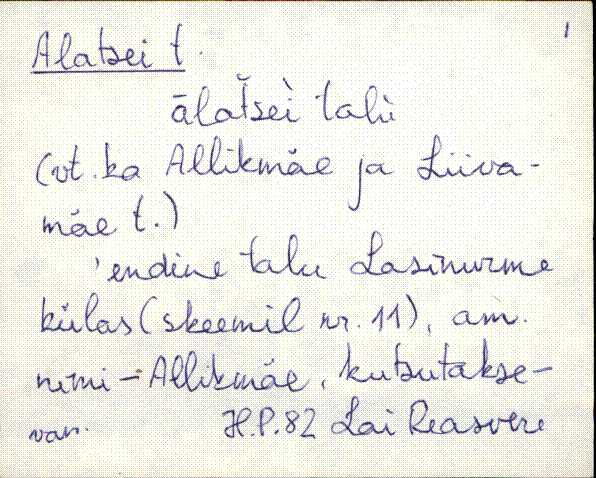 1
Alatsei t.
ālatšeì talù
(vt. ka Allikmäe ja Liiva-
mäe t.)
'endine talu Lasinurme
külas (skeemil nr. 11), am.
nimi - Allikmäe, kutsutakse-
van. H.P.82 Lai Reasvere